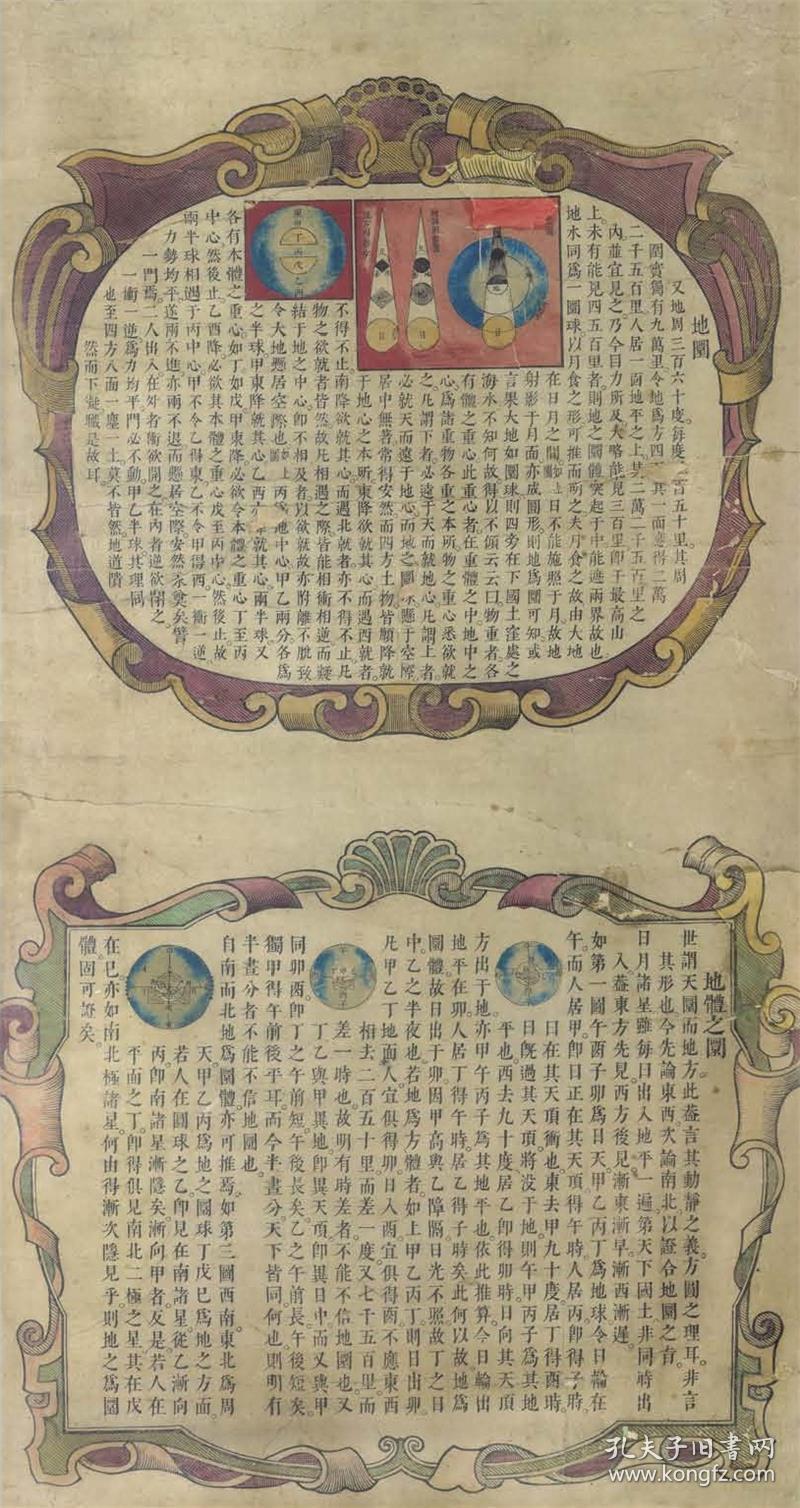 地圜
又地周三百六十度每度二百五十里其周
圍實獨有九萬里令地爲方四 其一面應得二萬
二千五百里人居一面地平之上其二萬二千五百里之
內並宜見之乃今目力所及大略能見三百里卽于最高山
上未有能見四五百里者則地之圜體突起于中能遮兩界故也
地水同爲一圜球以月食之形可推而明之夫月食之故由大地
在日月之間 上日不能施照于月故地
射影于月面亦成圜形則地爲圜可知或
言果大地如圜球則四旁在下國土窪處之
海水不知何故得以不傾云云曰物重者各
有體之重心此重心者在重體之中地中之
心爲諸重物各重之本所物之重心悉欲就
之凡謂下者必遠于天而就地心凡謂上者
必就天而遠于地心而地之圜 懸于空際
居中無著常得安然而四方土物皆願降就
于地心之本所東降欲就其心而遇西就者
不得不止南降欲就其心而遇北就者亦不得不止凡
物之欲就者皆然故凡相遇之際皆能相衝相逆而凝
結于地之中心卽不相及者以欲就故亦附離不脫致
令大地懸居空際也 上丙 地中心甲乙兩分各爲
之半球甲東降就其心乙西 就其心兩半球又
各有本體之重心如丁如戊甲東降必欲令本體之重心丁至丙
中心然後止乙西降必欲其本體之重心戊至丙中心然後止故
兩半球相遇于丙中心甲不令乙得東乙不令甲得西一衝一逆
力勢均平遂兩不進亦兩不退而懸居空際安然永奠矣譬
一門焉二人出入在外者衝欲開之在內者逆欲閉之
一衝一逆爲力均平門必不動甲乙半球其理同
也至四方八面一塵一土莫不皆然地道隤
然而下凝職是故耳
地體之圜
世謂天圜而地方此蓋言其動靜之義方圜之理耳非言
其形也今先論東西次論南北以證合地圜之旨
日月諸星雖每日出入地平一遍第天下國土非同時出
入蓋東方先見西方後見漸東漸早漸西漸遲
如第一圖午酉子卯爲日天甲乙丙丁爲地球令日輪在
午而人居甲卽日正在其天頂得午時人居丙卽得子時
日在其天頂衝也東去甲九十度居丁得酉時
日旣過其天頂將没于地則午甲丙子爲其地
平也西去九十度居乙卽得卯時日向其天頂
方出于地亦甲午丙子爲其地平也依此推算今日輪出
地平在卯人居丁得午時居乙得子時矣此何以故地爲
圜體故日出于卯因甲高與乙障隔日光不照故丁之日
中乙之半夜也若地爲方體者如上甲乙丙丁則日出卯
凡甲乙丁地面人宜俱得卯日入酉宜俱得酉不應東西
相去二百五十里而差一度又七千五百里而
差一時也故明有時差者不能不信地圜也又
丁乙與甲異地卽異天頂卽異日中而又與甲
同卯酉卽丁之午前短午後長矣乙之午前長午後短矣
獨甲得午前後平耳而今半晝分天下皆同何也則明有
半晝分者不能不信地圜也
自南而北地爲圜體亦可推焉如第三圖西南東北爲周
天甲乙丙爲地之圜球丁戊巳爲地之方面
若人在圜球之乙卽見在南諸星從乙漸向
丙卽南諸星漸隱矣漸向甲者反是若人在
平面之丁卽得俱見南北二極之星其在戊
在巳亦如南北極諸星何由得漸次隱見乎則地之爲圜
體固可證矣
孔夫子旧書网
www.kongfz.com